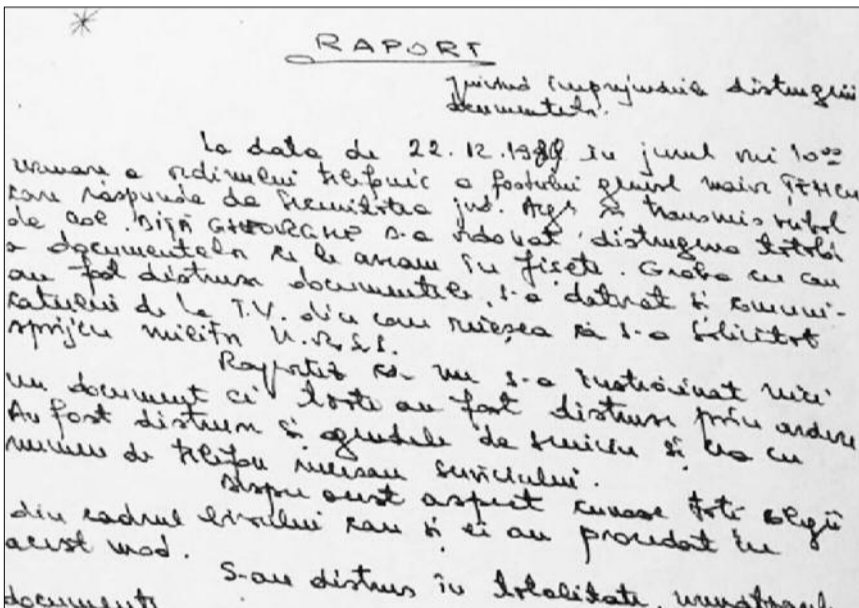 RAPORT
privind împrejurările distrugerii
documentelor.
La data de 22.12.1989 în jurul orei 10⁰⁰
urmare a ordinului telefonic a fostului general maior
care răspunde de Securitatea jud. Argeș transmis verbal
de col. DIȚĂ GHEORGHE s-a ordonat distrugerea totală
a documentelor ce le aveam în fișete. Graba cu care
au fost distruse documentele, s-a datorat și comuni-
catului de la T.V. din care reieșea că s-a solicitat
sprijin militar U.R.S.S.
Raportez că nu s-a înstrăinat nici
un document ci toate au fost distruse prin ardere
Au fost distruse și agendele de serviciu și cea cu
numere de telefon necesare serviciului.
Despre acest aspect cunosc toți colegii
din cadrul biroului care și ei au procedat în
acest mod.
S-au distrus în totalitate, următoarele
documente